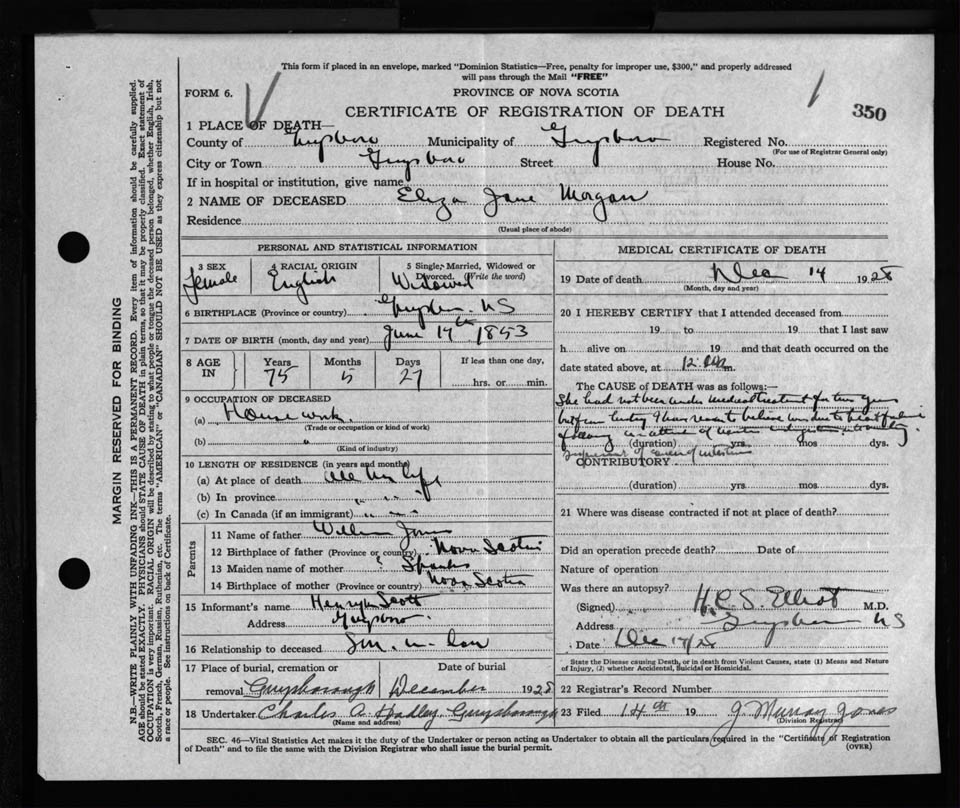 This form if placed in an envelope, marked "Dominion Statistics—Free, penalty for improper use, $300," and properly addressed
will pass through the Mail "FREE"
FORM 6.
PROVINCE OF NOVA SCOTIA
1
350
CERTIFICATE OF REGISTRATION OF DEATH
1 PLACE OF DEATH—
County of Guysboro Municipality of Guysboro Registered No.
(For use of Registrar General only)
City or Town Guysboro Street House No.
If in hospital or institution, give name
2 NAME OF DECEASED Eliza Jane Morgan
Residence
(Usual place of abode)
PERSONAL AND STATISTICAL INFORMATION
3 SEX 4 RACIAL ORIGIN 5 Single, Married, Widowed or
Divorced. (Write the word)
female English Widowed
6 BIRTHPLACE (Province or country) NS
7 DATE OF BIRTH (month, day and year) June 17th 1853
8 AGE IN Years Months Days If less than one day,
75 5 27 hrs. or min.
9 OCCUPATION OF DECEASED
(a) House work
(Trade or occupation or kind of work)
(b) "
(Kind of industry)
10 LENGTH OF RESIDENCE (in years and months)
(a) At place of death All her life
(b) In province " " "
(c) In Canada (if an immigrant) " " "
Parents
11 Name of father
12 Birthplace of father (Province or country) Nova Scotia
13 Maiden name of mother ? Sparks
14 Birthplace of mother (Province or country) Nova Scotia
15 Informant's name Henry Scott
Address Guysboro.
16 Relationship to deceased Son in law
17 Place of burial, cremation or Date of burial
removal Guysborough December 1928
18 Undertaker Charles A. Hadley, Guysborough
(Name and address)
MEDICAL CERTIFICATE OF DEATH
19 Date of death Dec 14 1928
(Month, day and year)
20 I HEREBY CERTIFY that I attended deceased from
19 to 19 that I last saw
h alive on 19 and that death occurred on the
date stated above, at 12 m.
The CAUSE of DEATH was as follows:—
She had not been under medical treatment for two years
but from history I have reason to believe
(duration) yrs. mos dys.
CONTRIBUTORY
(duration) yrs mos dys.
21 Where was disease contracted if not at place of death?
Did an operation precede death? Date of
Nature of operation
Was there an autopsy?
(Signed) H.C.S. Elliot M.D.
Address Guysboro NS
Date Dec 17/28
State the Disease causing Death, or in death from Violent Causes, state (1) Means and Nature
of Injury, (2) whether Accidental, Suicidal or Homicidal.
22 Registrar's Record Number
23 Filed 14th 19 J. Murray Jones
(Division Registrar)
SEC. 46—Vital Statistics Act makes it the duty of the Undertaker or person acting as Undertaker to obtain all the particulars required in the "Certificate of Registration
of Death" and to file the same with the Division Registrar who shall issue the burial permit.
(OVER)
MARGIN RESERVED FOR BINDING
N.B.—WRITE PLAINLY WITH UNFADING INK—THIS IS A PERMANENT RECORD. Every item of information should be carefully supplied.
AGE should be stated EXACTLY. PHYSICIANS should STATE CAUSE OF DEATH in plain terms, so that it may be properly classified. Exact statement of
OCCUPATION is very important. RACIAL ORIGIN will be described by stating to what people or tongue the deceased person belonged, whether English, Irish,
Scotch, French, German, Russian, Ruthenian, etc. The terms "AMERICAN" or "CANADIAN" SHOULD NOT BE USED as they express citizenship but not
a race or people. See instructions on back of Certificate.